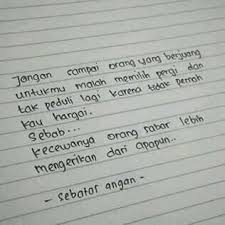 Jangan sampai orang yang berjuang
untukmu malah memilih pergi dan
tak peduli lagi karena tidak pernah
kau hargai.
Sebab...
kecewanya orang sabar lebih
mengerikan dari apapun..
- sebatar angan -